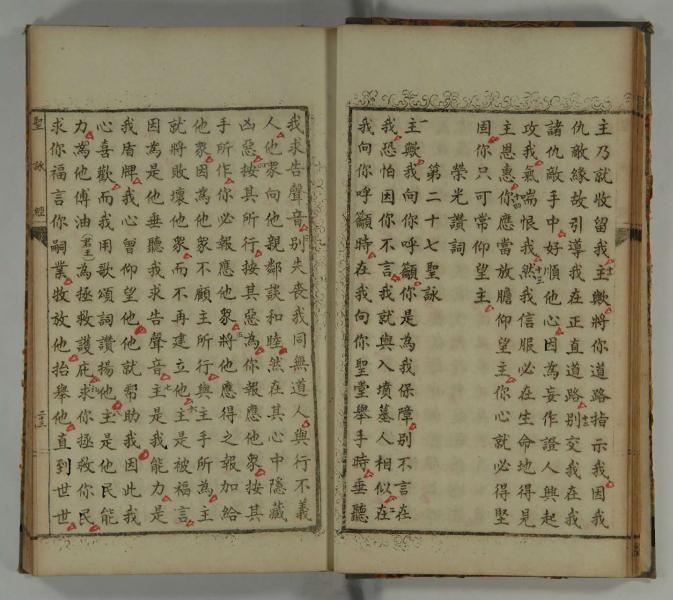 主乃就收留我主歟將你道路指示我因我
仇敵緣故引導我在正直道路別交我在我
諸仇敵手中好順他心因為妄作證人興起
攻我氣喘恨我然我信服必在生命地得見
主恩惠你應當放膽仰望主你心就必得堅
固你只可常仰望主
榮光讚詞
第二十七聖詠
主歟我向你呼籲你是為我保障別不言在
我恐怕因你不言我就與入墳墓人相似在
我向你呼籲時在我向你聖堂舉手時垂聽
我求告聲音別失喪我同無道人與行不義
人他衆向他親鄰談和睦然在其心中隱藏
凶惡按其所行按其惡為你報應他衆按其
手所作你必報應他衆將他應得之報加給
他衆因為他衆不顧主所行與主手所為主
就將敗壞他衆而不再建立他主是被福言
因為是他垂聽我求告聲音主是我能力是
我盾牌我心曾仰望他他就幫助我因此我
心喜歡而我用歌頌詞讚揚他主是他民能
力為他傅油(君王)為拯救護庇求你拯救你民
求你福言你嗣業牧放他抬舉他直到世世
聖詠經
二十三